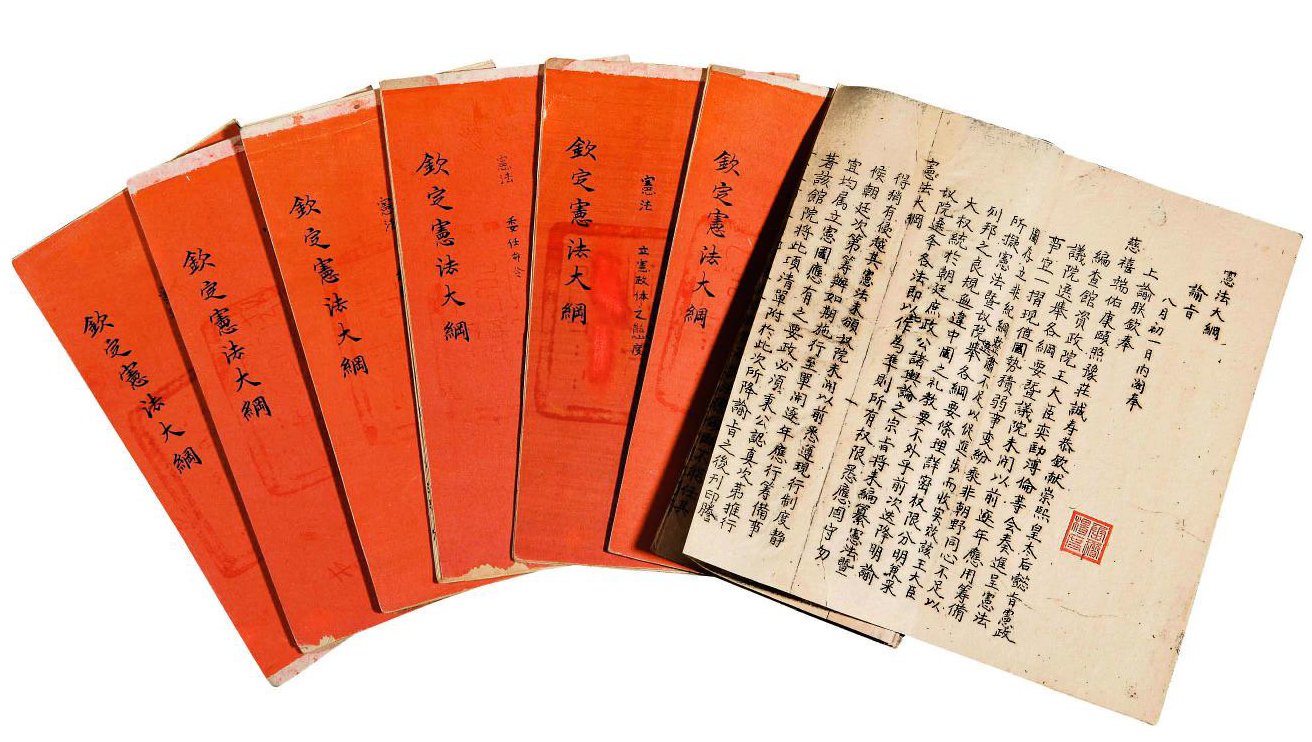 憲法大綱
諭旨
八月初一日内閣奉
上諭朕欽奉
慈禧端佑康頤照豫莊誠寿恭欽献崇熙皇太后懿旨憲政
編查館資政院王大臣奕劻溥倫等会奏進呈憲法
議院選举各綱要暨議院未開以前逐年應用籌備
事宜一摺現值國勢積弱事变紛乘非朝野同心不足以
圖存立非紀綱整肅不足以促進步而收实效該王大臣
所擬憲法暨议院選举各綱要條理詳密權限分明兼采
列邦之良規無違中國之礼教要不外乎前次迭降明諭
大权統於朝廷庶政公諸輿論之宗旨将来編纂憲法暨
议院選举各法即以作為準則所有权限悉應固守勿
憲法大綱
得稍有侵越其憲法未頒议院未開以前悉遵現行制度静
候朝廷次第籌辦如期施行至單開逐年應行籌備事
宜均属立憲國應有之要政必須秉公認真次第推行
著該館院将此項清單附於此次所降諭旨之後刊印謄
欽定憲法大綱
憲法 立憲政体
欽定憲法大綱
憲法 委任
欽定憲法大綱
憲法
欽定憲法大綱
欽定憲法大綱
欽定憲法大綱